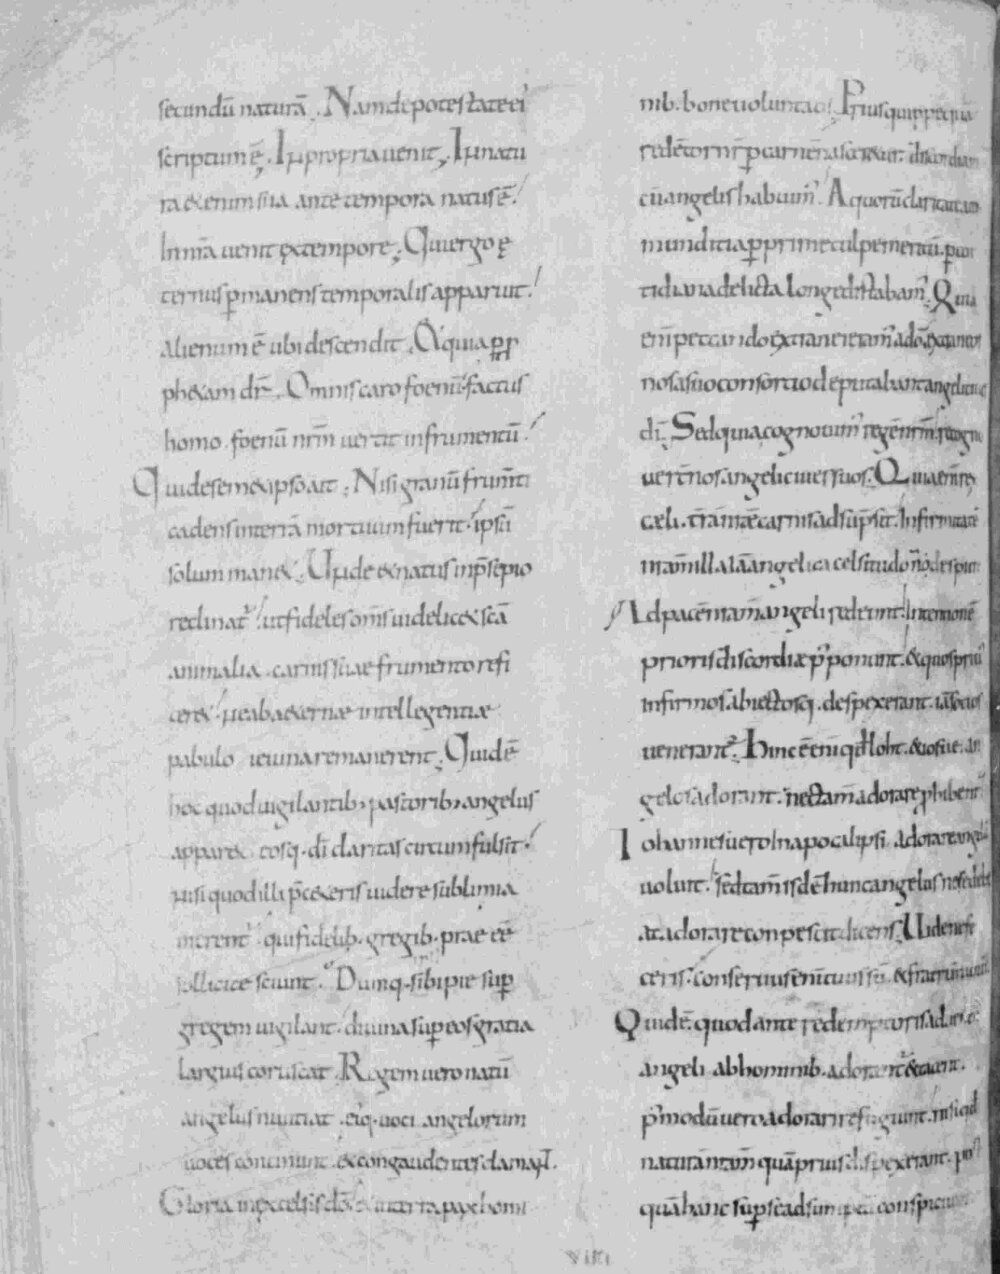 secundū naturā. Nam de potestate ei
scriptum ē, In propria uenit, In natu
ra etenim sua ante tempora natus ē.
In nr̄a uenit ex tempore, Qui ergo ę
ternus ꝑmanens temporalis apparuit.
alienum ē ubi descendit. Et quia ꝑ ꝓ
phetam dr̄. Omnis caro foenū. factus
homo. foenū nr̄m uertit in frumentū.
Qui de semetipso ait. Nisi granū frum̄ti
cadens in terrā mortuum fuerit. ipsū
solum manet. Unde et natus in p̄sepio
reclinat̄. ut fideles om̄s uidelicet sc̄a
animalia. carnis suae frumento refi
ceret. ne ab aeternae intellegentiae
pabulo ieiuna remanerent. Quid ē
hoc quod uigilantib; pastorib; angelus
apparet. eosq. dī claritas circumfulsit.
nisi quod illi p̄ ceteris uidere sublimia
merent̄ qui fidelib. gregib. prae eē
sollicite sciunt. Dumq. sibi pie sup̄
gregem uigilant. diuina sup̄ eos gratia
largius coruscat. Regem uero natū
angelus nuntiat. eiq. uoci angelorum
uoces concinunt. et congaudentes clamant.
Gloria in excelsis dō. et in terra pax homi
nib. bone uoluntatis. Prius quippe quā
redētor nr̄ ꝑ carnē nasceretur. discordiam
cū angelis habuim̄. A quorū claritate atq.
munditia ꝑ prime culpe meritū. ꝑ coti
tidiana delicta longe distabam̄. Quia
enī peccando extranei eram̄ a dō. extraneos
nos a suo consortio deputabant angeli ciues
dī. Sed quia cognouim̄ regē nr̄m. recogno
uer̄t nos angeli ciues suos. Quia enī rex
cæli. t̄rā nr̄æ carnis adsūpsit. Infirmitatē
nr̄am illa iā angelica celsitudo n̄ despicit.
Ad pacē nr̄am angeli redeunt. Intentionē
prioris discordiæ p̄ponunt. et quos prius
infirmos abiectosq. despexerant. iā socios
uenerant̄. Hinc ē enī qd̄ loth. et iosue. an
gelos adorant. nec tam̄ adorare ꝓhibent̄
Iohannes uero In apocalipsi adorare angelū
uoluit. sed tam̄ isdē hunc angelus ne se debe
at adorare conpescit dicens. Uide ne fe
ceris. conseruus enī tuus sū. et fratrū tuorū.
Quid ē. quod ante redemptoris aduentū
angeli ab hominib. adorant̄ et tacent.
p̄modū uero adorari refugiunt. nisi qd
naturā nr̄am quā prius despexerant. pos̄
quā hanc sup̄ se adsumptā conspiciunt
VIIII